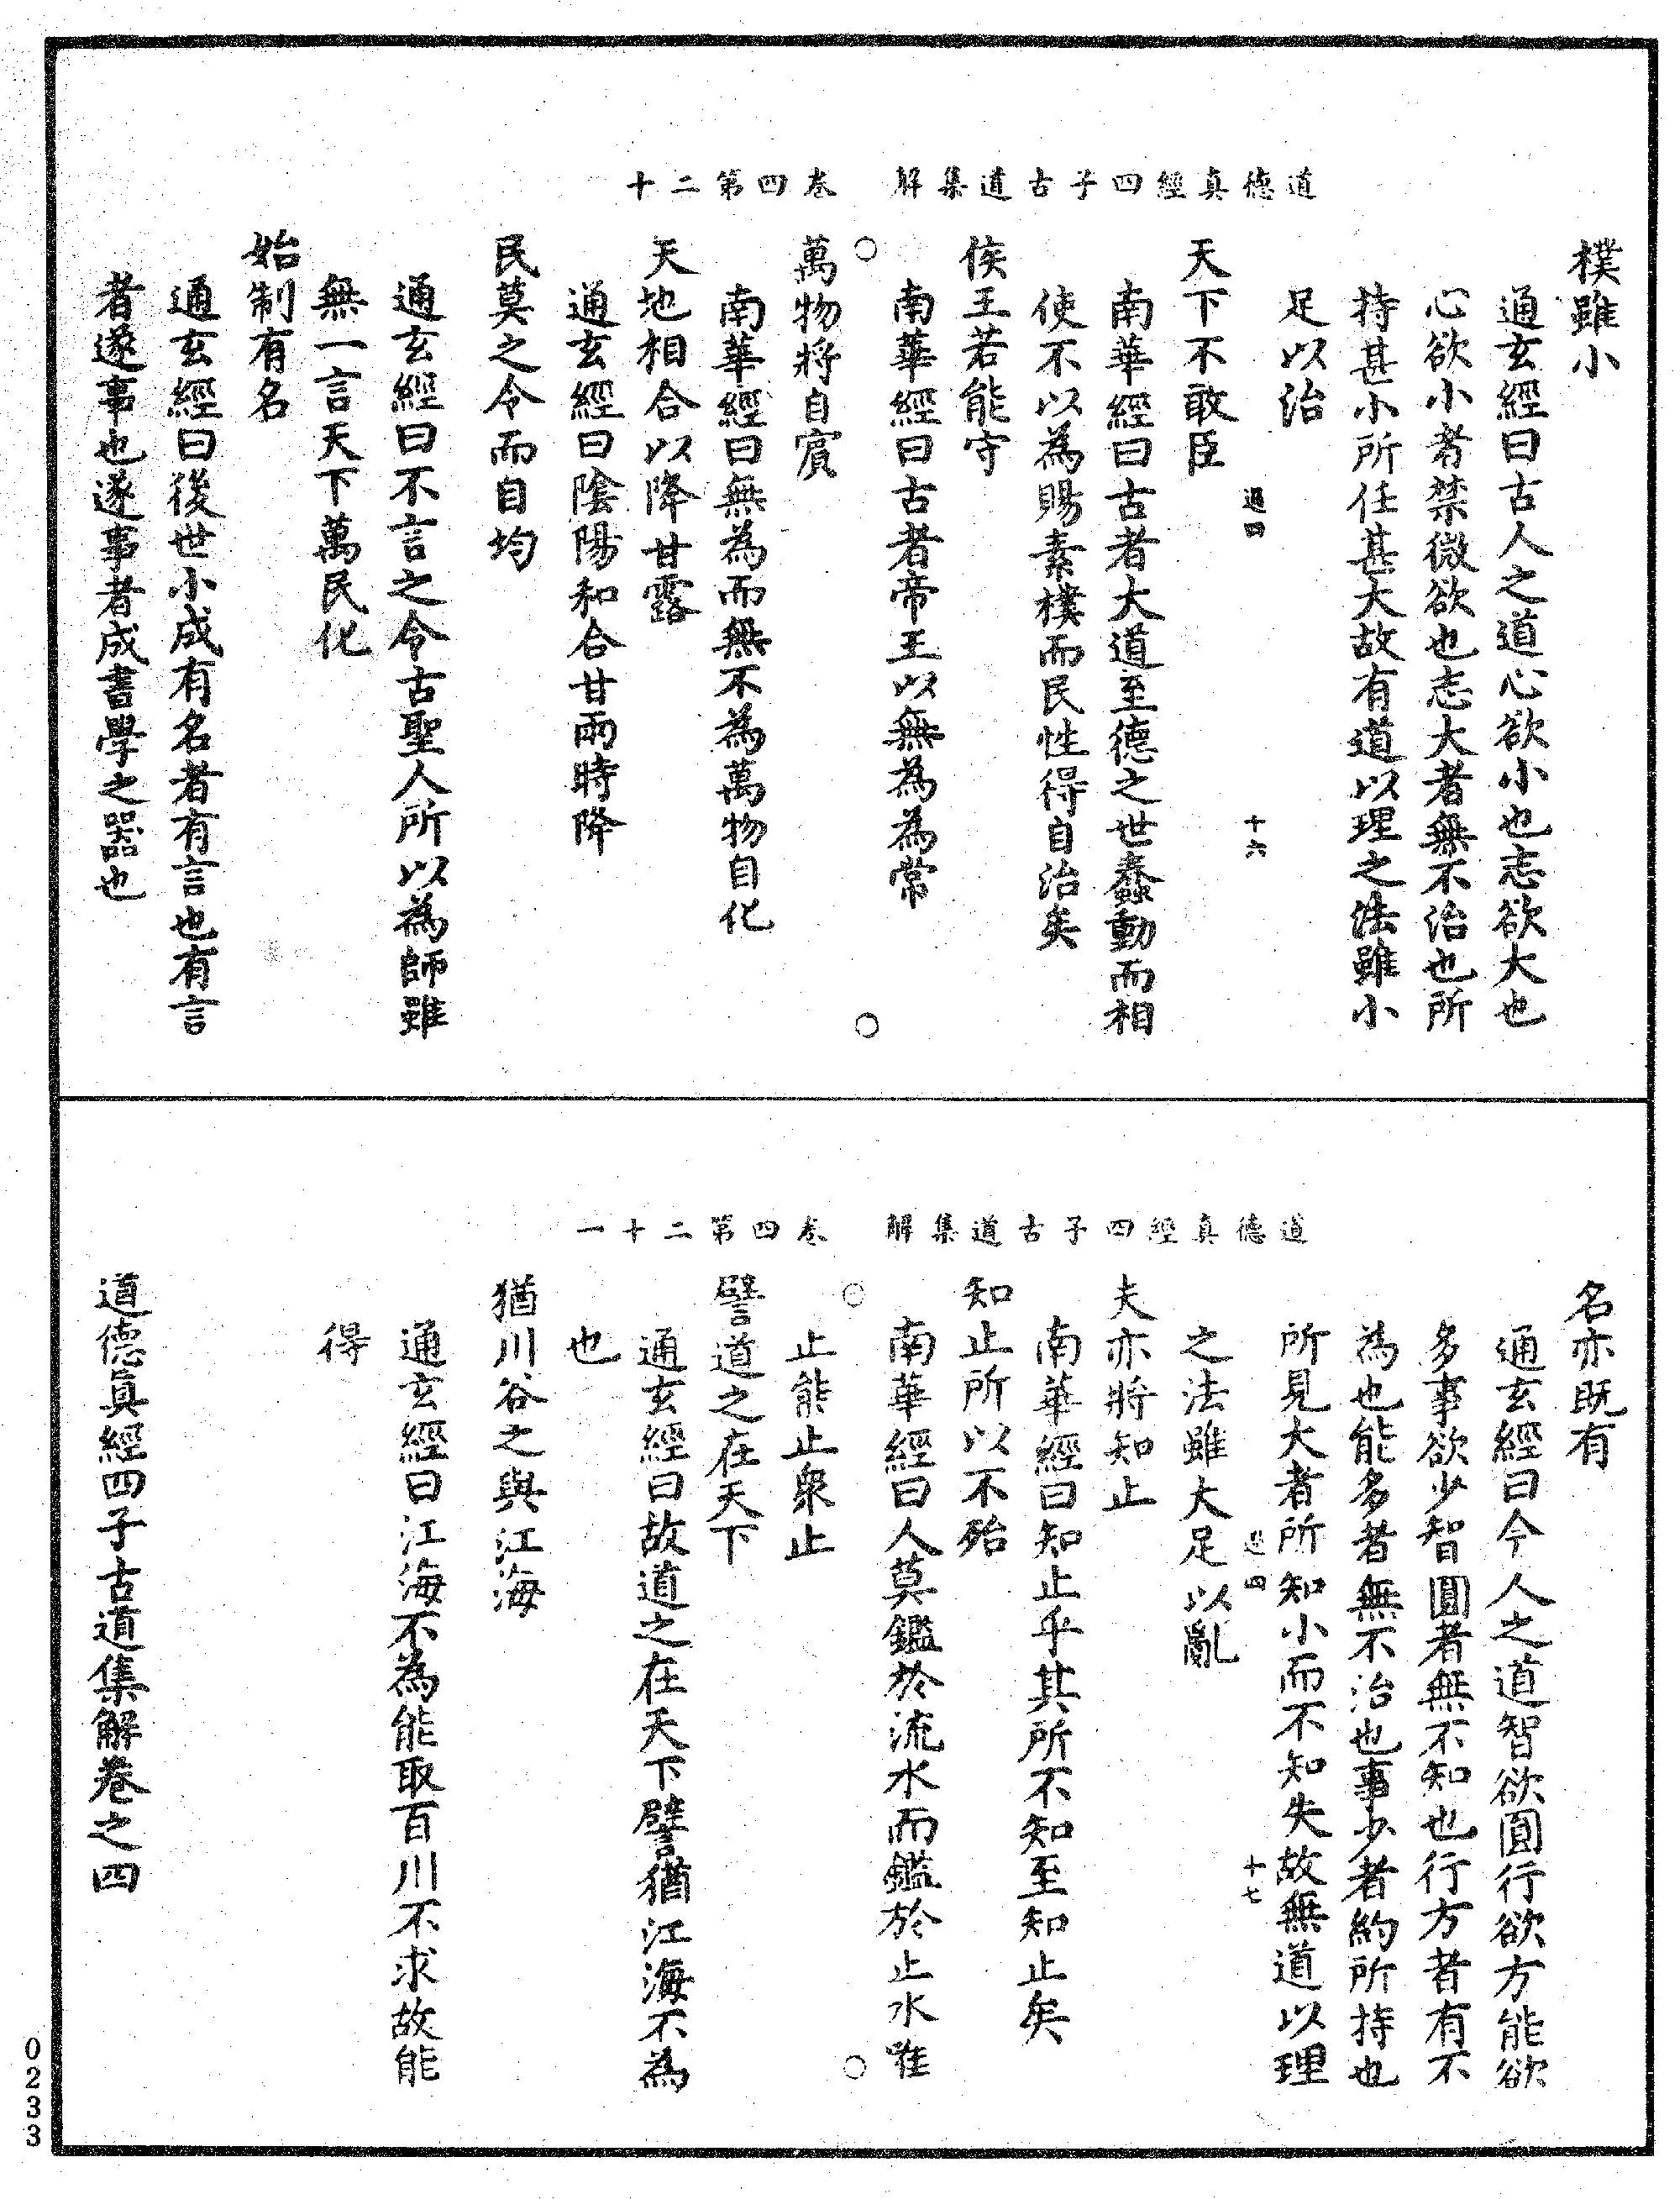 道德真經四子古道集解　卷四第二十
樸雖小
通玄經曰古人之道心欲小也志欲大也
心欲小者禁微欲也志大者無不治也所
持甚小所任甚大故有道以理之法雖小
足以治
過四　十六
天下不敢臣
南華經曰古者大道至德之世蠢動而相
使不以為賜素樸而民性得自治矣
侯王若能守
南華經曰古者帝王以無為為常
萬物將自賓
南華經曰無為而無不為萬物自化
天地相合以降甘露
通玄經曰陰陽和合甘雨時降
民莫之令而自均
通玄經曰不言之令古聖人所以為師雖
無一言天下萬民化
始制有名
通玄經曰後世小成有名者有言也有言
者遂事也遂事者成書學之器也
道德真經四子古道集解　卷四第二十一
名亦既有
通玄經曰今人之道智欲圓行欲方能欲
多事欲少智圓者無不知也行方者有不
為也能多者無不治也事少者約所持也
所見大者所知小而不知失故無道以理
之法雖大足以亂
過四　十七
夫亦將知止
南華經曰知止乎其所不知至知止矣
知止所以不殆
南華經曰人莫鑑於流水而鑑於止水唯
止能止衆止
譬道之在天下
通玄經曰故道之在天下譬猶江海不為
也
猶川谷之與江海
通玄經曰江海不為能取百川不求故能
得
道德真經四子古道集解卷之四
0233